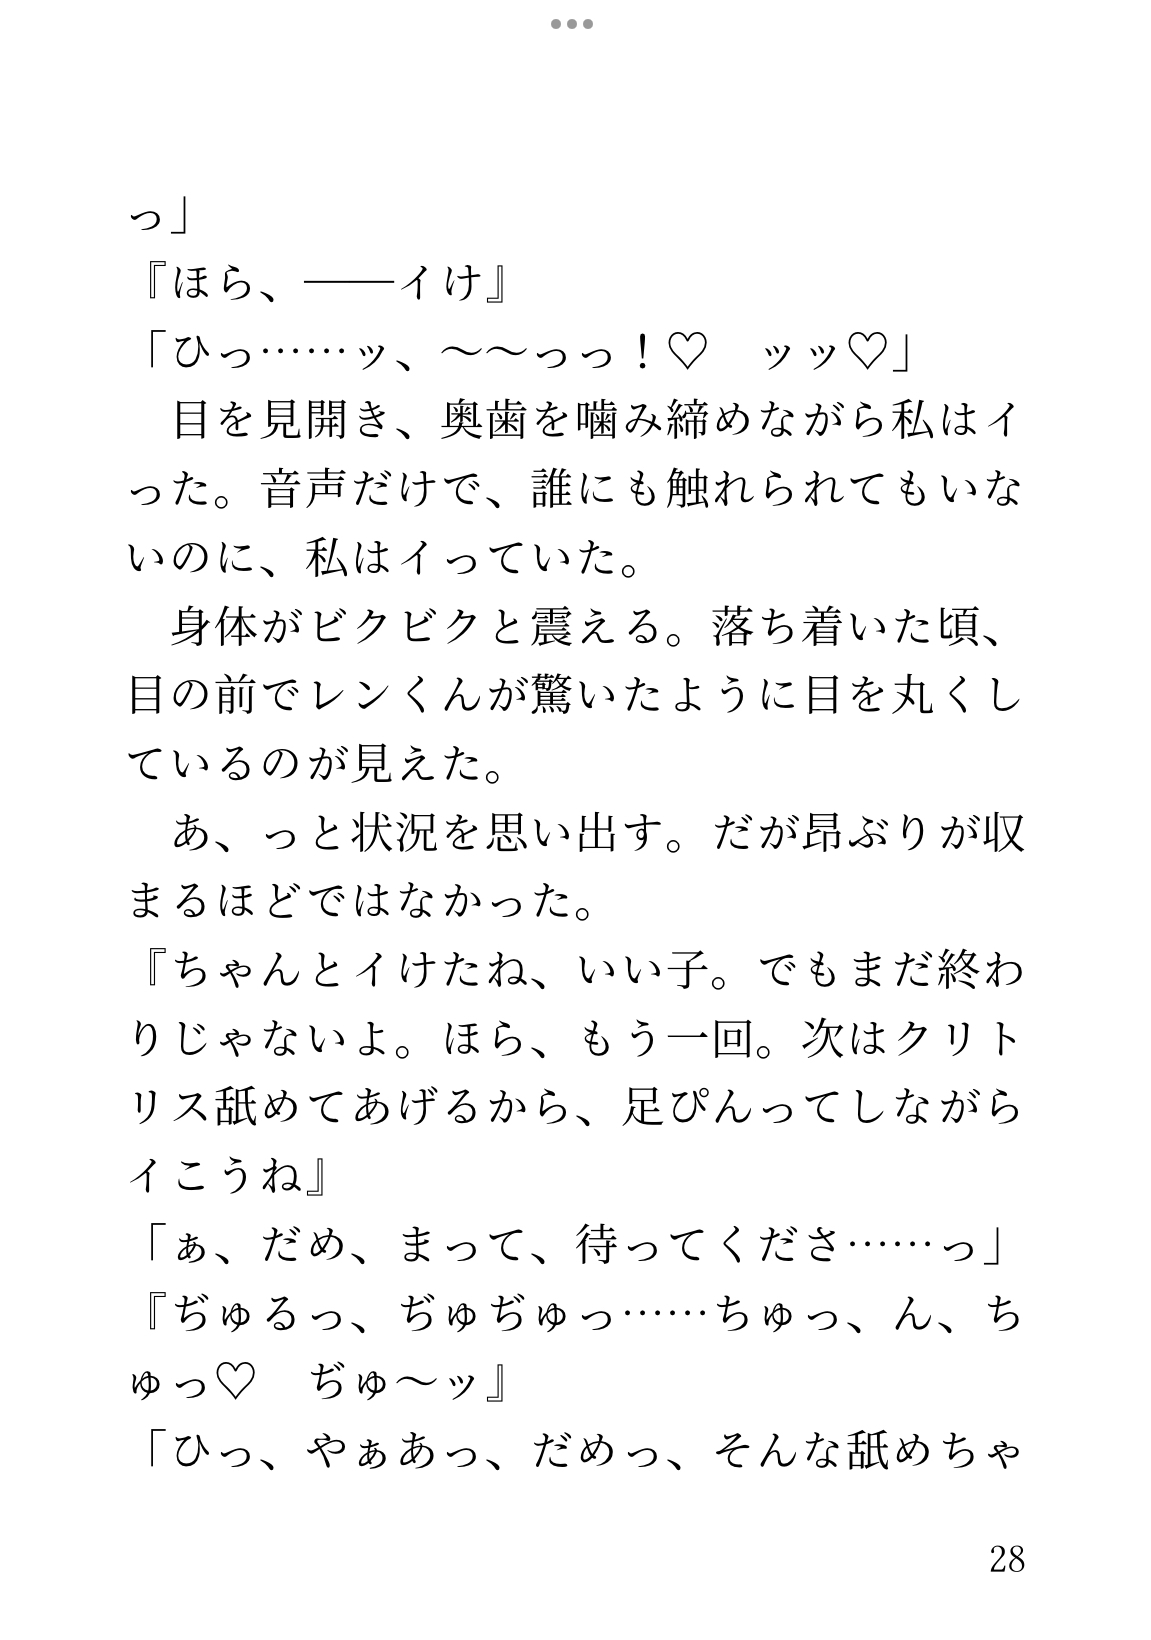 っ」
『ほら、――イけ』
「ひっ……ッ、～～っっ！♡　ッッ♡」
　目を見開き、奥歯を噛み締めながら私はイ
った。音声だけで、誰にも触れられてもいな
いのに、私はイっていた。
　身体がビクビクと震える。落ち着いた頃、
目の前でレンくんが驚いたように目を丸くし
ているのが見えた。
　あ、っと状況を思い出す。だが昂ぶりが収
まるほどではなかった。
『ちゃんとイけたね、いい子。でもまだ終わ
りじゃないよ。ほら、もう一回。次はクリト
リス舐めてあげるから、足ぴんってしながら
イこうね』
「ぁ、だめ、まって、待ってくださ……っ」
『ぢゅるっ、ぢゅぢゅっ……ちゅっ、ん、ち
ゅっ♡　ぢゅ～ッ』
「ひっ、やぁあっ、だめっ、そんな舐めちゃ
28